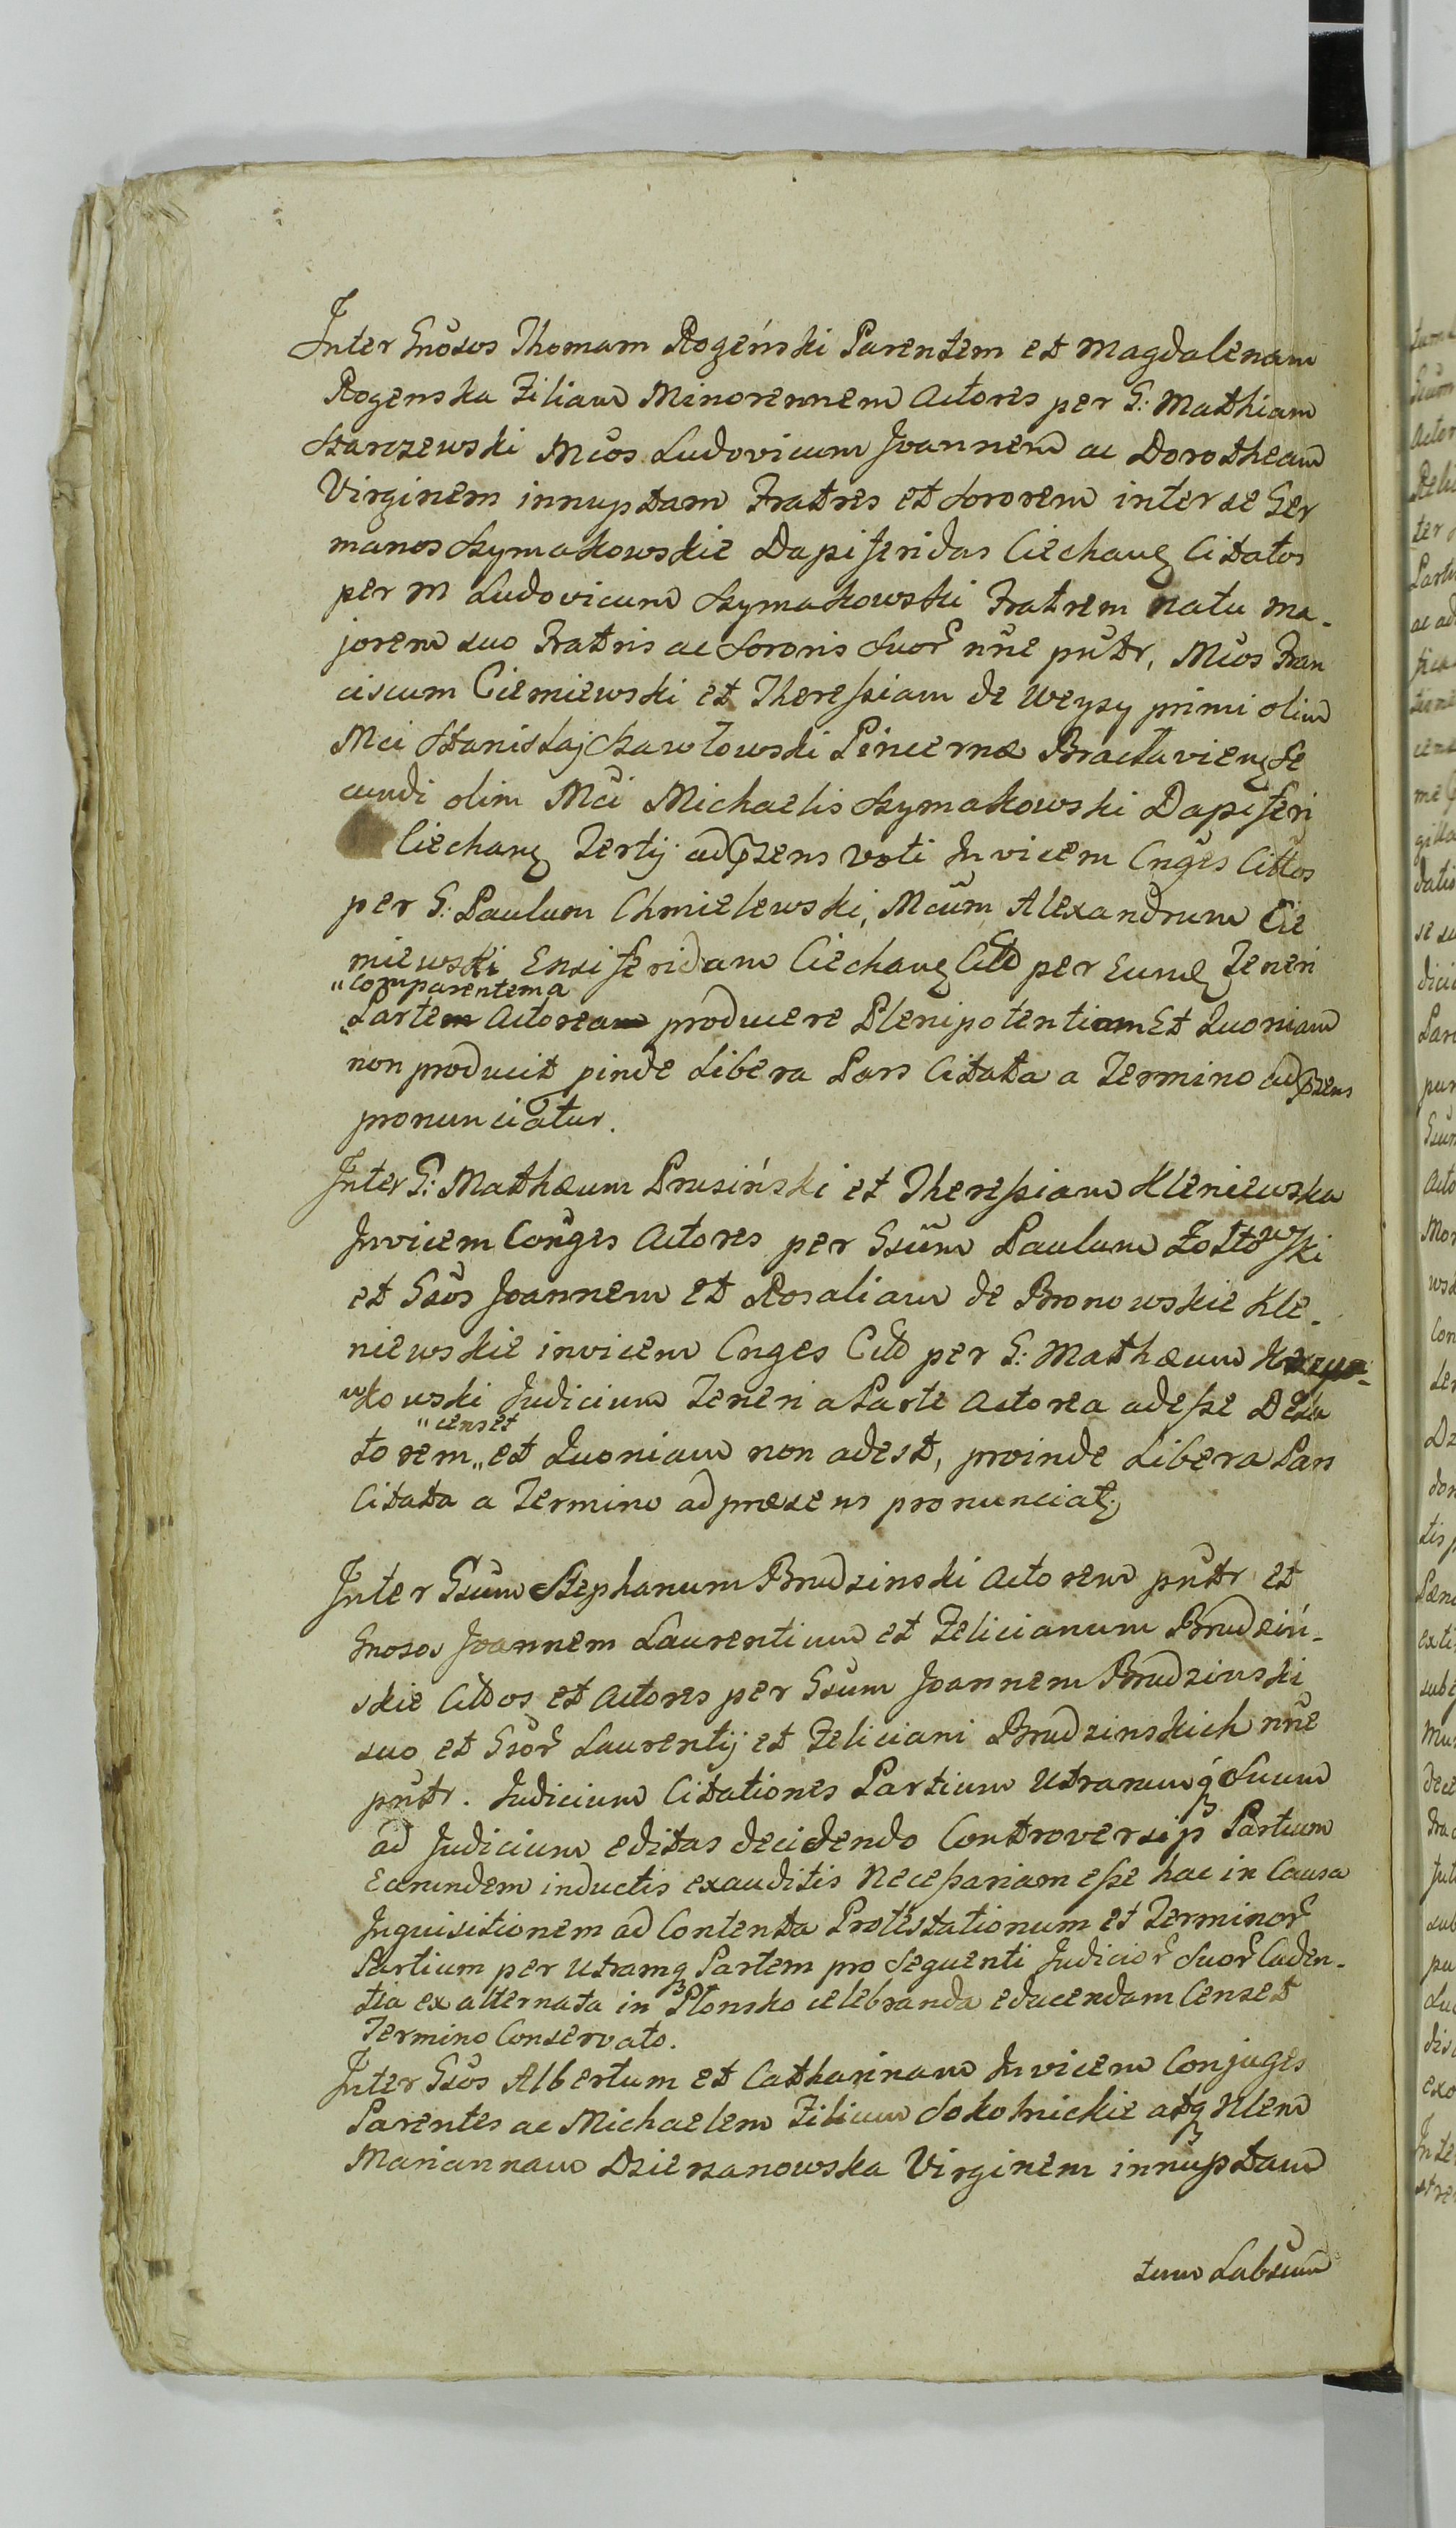 Inter Gnosos Thomam Rogeński Parentem et Magdalenam
Rogenska Filiam Minorennem Actores per G: Mathiam
Starczewski Mcos Ludovicum Joannem ac Dorotheam
Virginem innuptam Fratres et Sororem inter se Ger
manos Szymakowskie Dapiferidas Ciechang Citatos
per M Ludovicum Szymakowski Fratrem natu ma-
jorem suo Fratris ac Sororis Suor nne pntr, Mcos Fran
ciscum Ciemiewski et Theressiam de Weysy primi olim
Mci Stanislaj Szawłowski Pincernæ Bractavieng Se
cundi olim Mci Michaelis Szymakowski Dapiferi
Ciechang Tertij ad pzens voti Invicem Cnges Cittos
per G: Paulum Chmielewski, Mcum Alexandrum Cie
miewski Ensiferidam Ciechang Citt per Eund Teneri
"comparentem a
"Parte Actorea producere Plenipotentiam Et Quoniam
non producit pinde Libera Pars Citata a Termino ad pzens
pronunciatur.
Inter G: Mathæum Prusiński et Theressiam Kleniewska
Invicem Conges Actores per Gsum Paulum Żołtowski
et Gsos Joannem et Rosaliam de Bronowskie Kle-
niewskie invicem Cnges Citt per G: Mathæum
kowski Judicium Teneri a Parte Actorea adesse Dela
"censet
torem " et Quoniam non adest, proinde Libera Pars
Citata a Termino ad præsens pronunciat
Inter Gsum Stephanum Brudzinski Actorem pntr et
Gnosos Joannem Laurentium et Felicianum Brudziń-
skie Cittos et Actores per Gsum Joannem Brudzinski
suo et Gsor Laurentij et Feliciani Brudzinskich nne
pntr. Judicium Citationes Partium Utrarumq Suum
ad Judicium editas decidendo Controversijs Partium
Earundem inductis exauditis Necessariam esse hac in Causa
Inquisitionem ad Contenta Protestationum et Terminor
Partium per Utramq Partem pro Sequenti Judicior Suor Caden-
tia ex alternata in Płonsko celebranda educendam Censet
Termino Conservato.
Inter Gsos Albertum et Catharinam Invicem Conjuges
Parentes ac Michaelem Filium Sokolnickie atq Nlem
Mariannam Dzierzanowska Virginem innuptam
tum Labsum